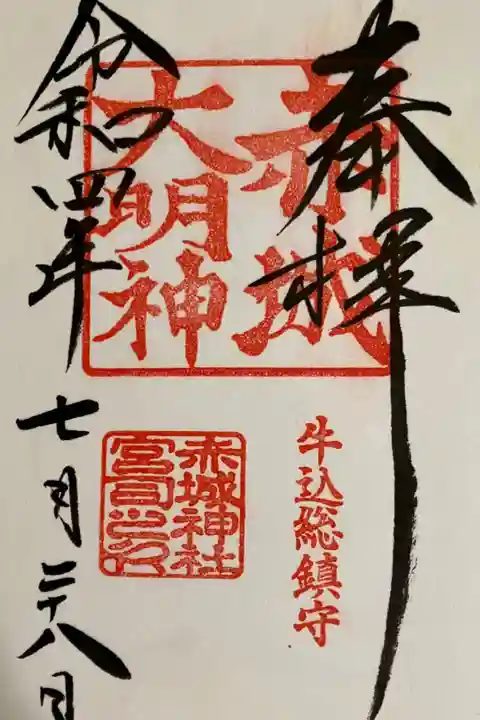 奉拝
赤城
大明神
牛込総鎮守
赤城神社
宮司之印
令和四年
七月二十八日